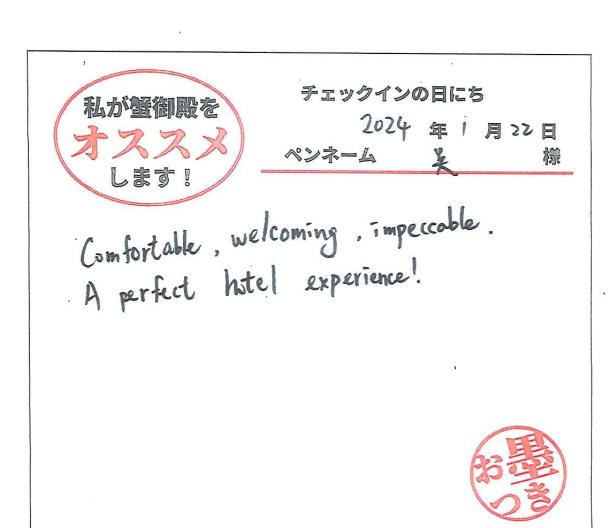 私が蟹御殿を
オススメ
します！
チェックインの日にち
2024 年 1 月 22 日
ペンネーム 美 様
Comfortable, welcoming, impeccable.
A perfect hotel experience!
お墨
つき